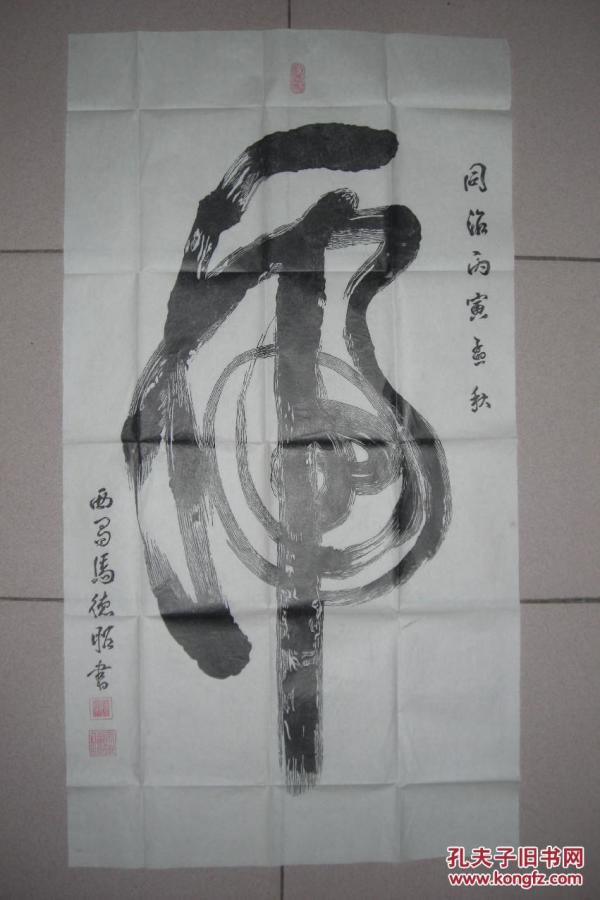 同治丙寅孟秋
西蜀馬德昭書
孔夫子旧书网
www.kongfz.com